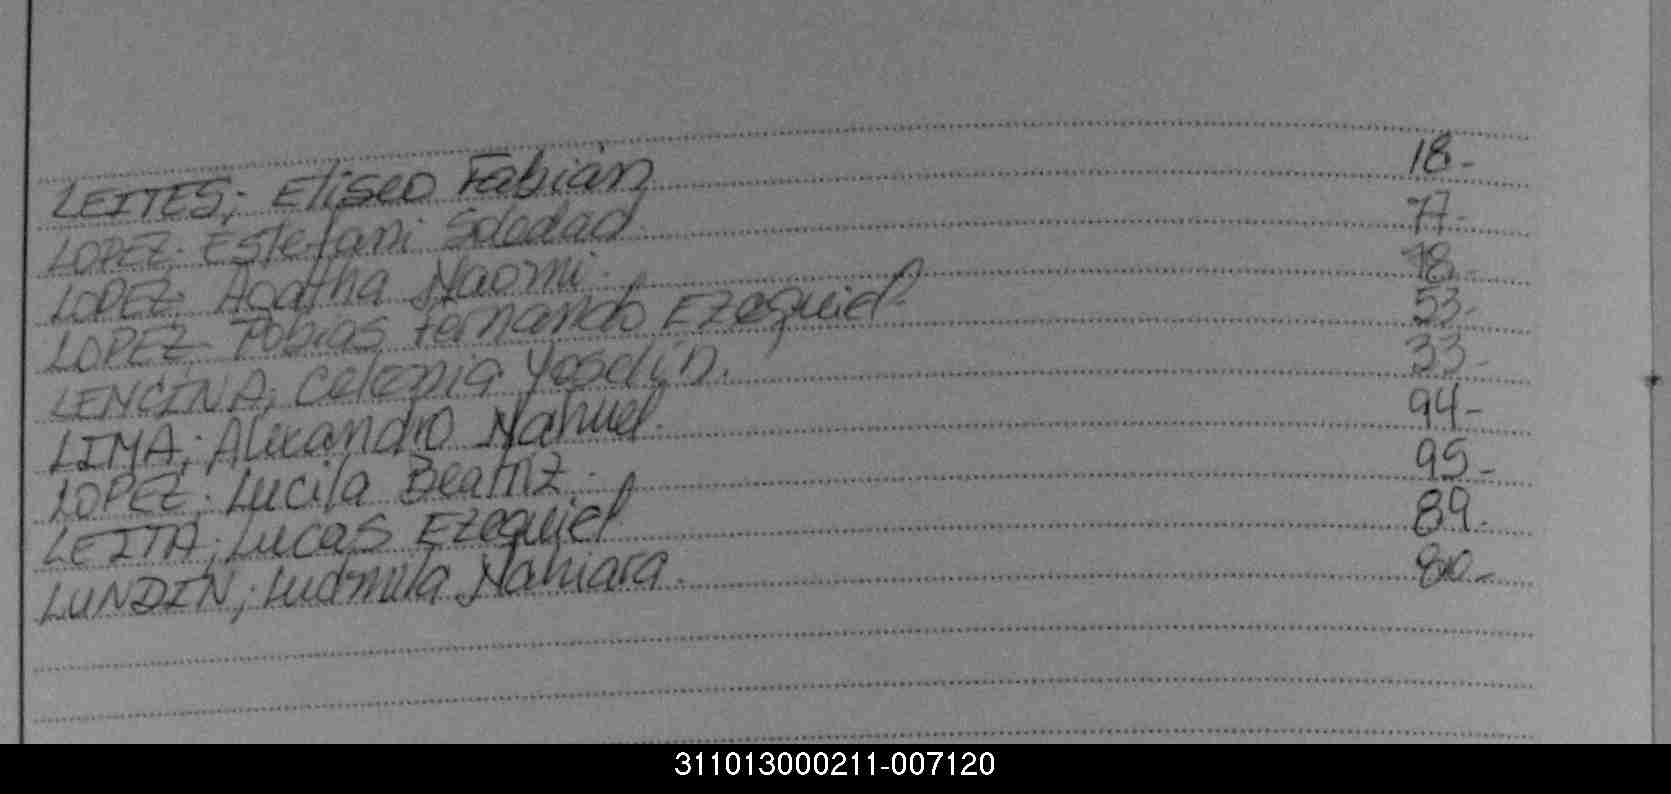 LEITES; Eliseo Fabián 18-
LOPEZ; Estefani Soledad 77-
LOPEZ; Agatha Naomi. 78-
LOPEZ Tobias Fernando Ezequiel 53-
LENCINA; Celenia Yoselin. 33-
LIMA; Alexandro Nahuel. 94-
LOPEZ; Lucila Beatriz. 95-
LEITA; Lucas Ezequiel 89-
LUNDIN; Ludmila Nahiara. 80-
311013000211-007120